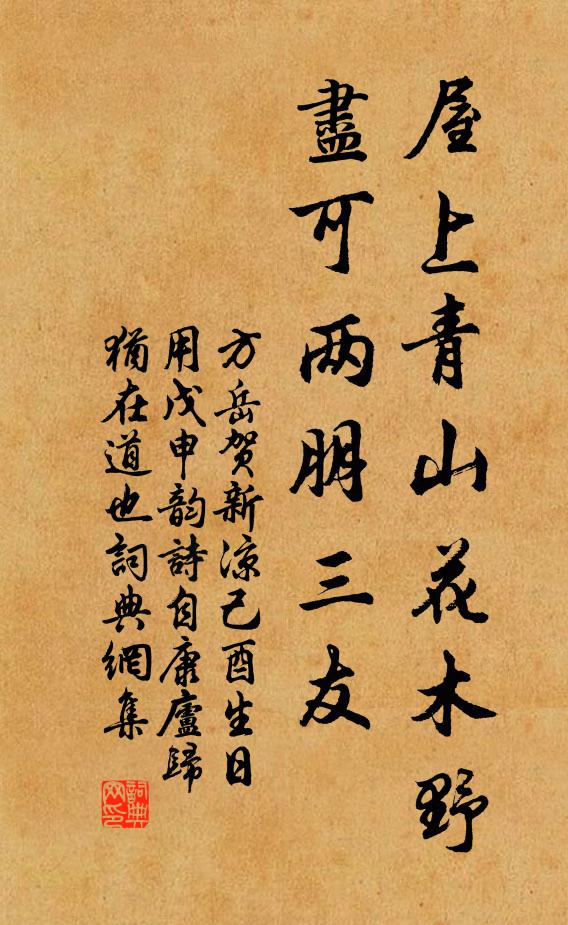 屋上青山花木野
盡可两朋三友
方岳贺新涼己酉生日
用戊申韵詩自康廬歸
猶在道也詞典網集
詞典
网印